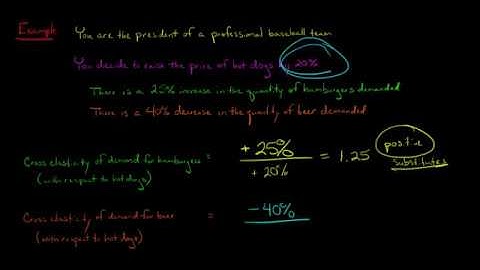 Example: You are the president of a professional baseball team
You decide to raise the price of hot dogs by 20%
There is a 25% increase in the quantity of hamburgers demanded
There is a 40% decrease in the quantity of beer demanded
Cross elasticity of demand for hamburgers = +25% / +20% = 1.25 positive
(with respect to hot dogs) substitutes
Cross elasticity of demand for beer = -40%
(with respect to hot dogs)